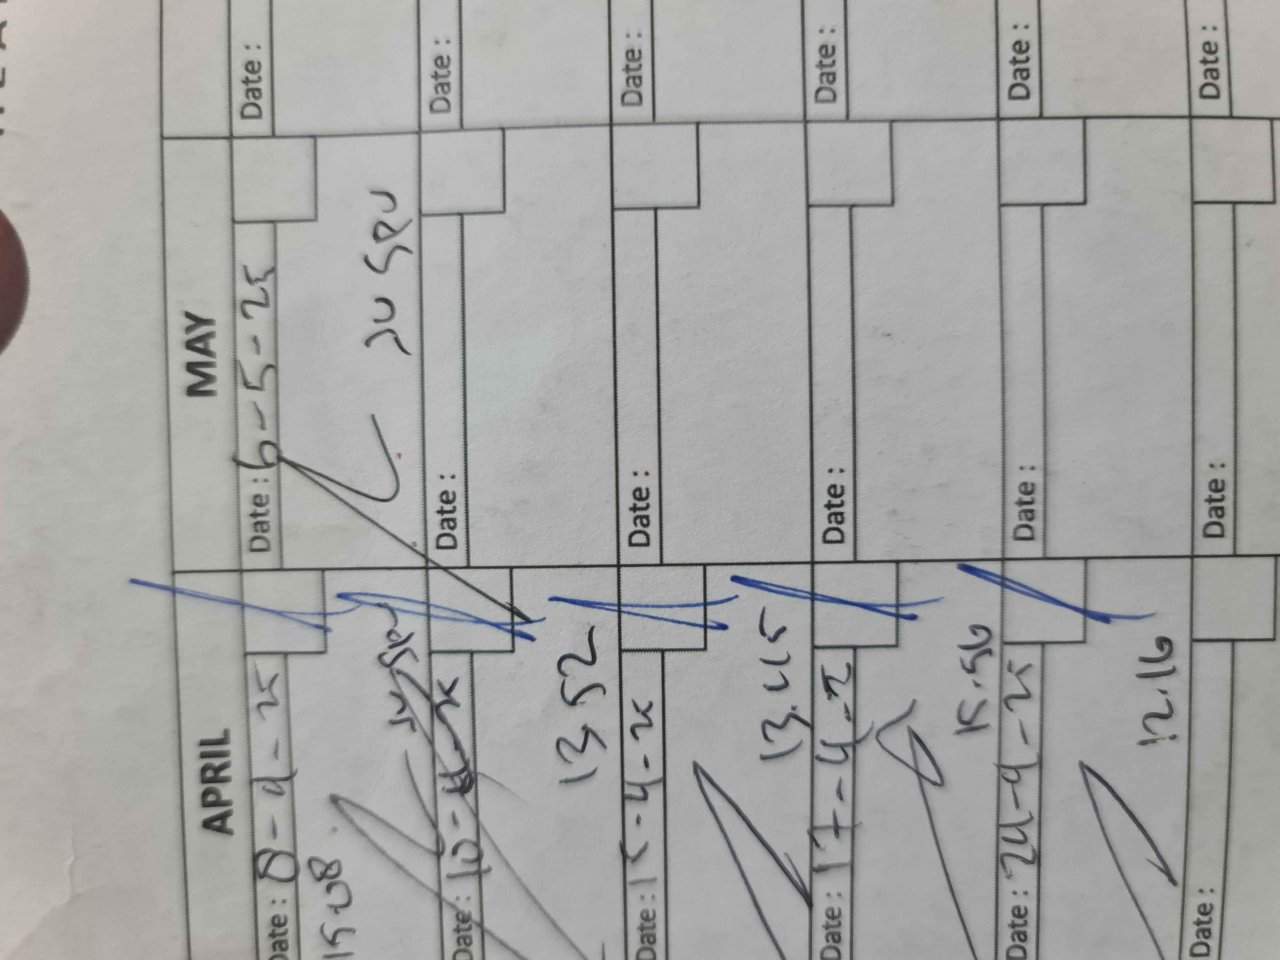 APRIL MAY
Date : 8-4-25
15:08
Date : 6-5-25
Date :
Date : 10-4-25
13 52
Date :
Date :
Date : 15-4-25
13.45
Date :
Date :
Date : 17-4-25
15.56
Date :
Date :
Date : 24-4-25
12.16
Date :
Date :
Date :
Date :
Date :